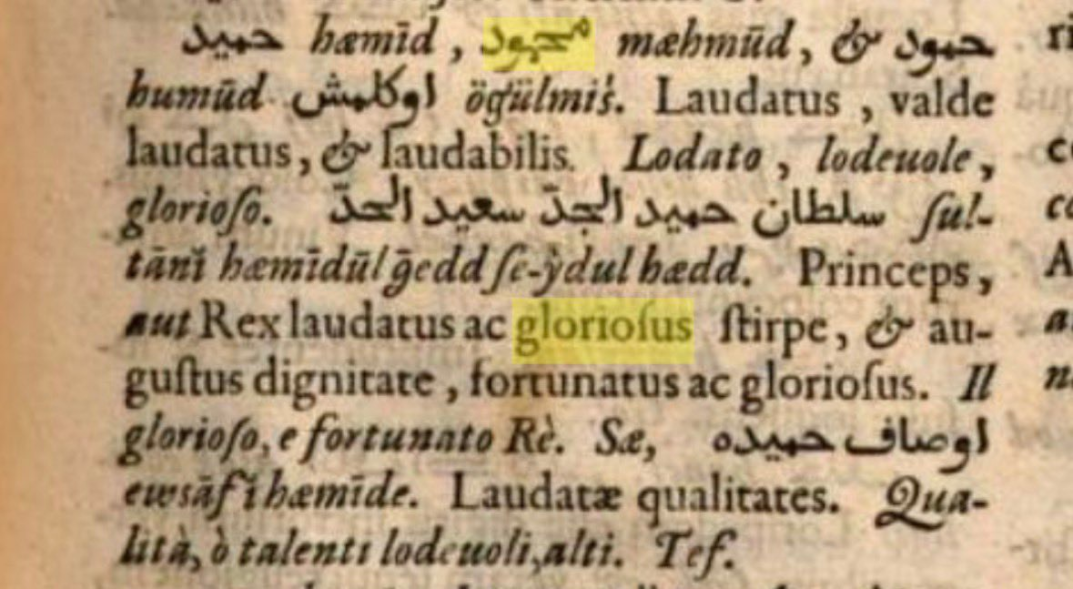 حميد hæmīd, محمود mæhmūd, & حمود
humūd اوكلمش ögülmiś. Laudatus, valde
laudatus, & laudabilis. Lodato, lodeuole,
glorioſo. سلطان حميد الجدّ سعيد الحدّ ſul-
tānĭ hæmīdūl g̃edd ſe-ỳdul hædd. Princeps,
aut Rex laudatus ac glorioſus ſtirpe, & au-
guſtus dignitate, fortunatus ac glorioſus. Il
glorioſo, e fortunato Rè. Sæ, اوصاف حميده
ewsāf ĭ hæmīde. Laudatæ qualitates. Qua-
lità, ò talenti lodeuoli, alti. Tef.